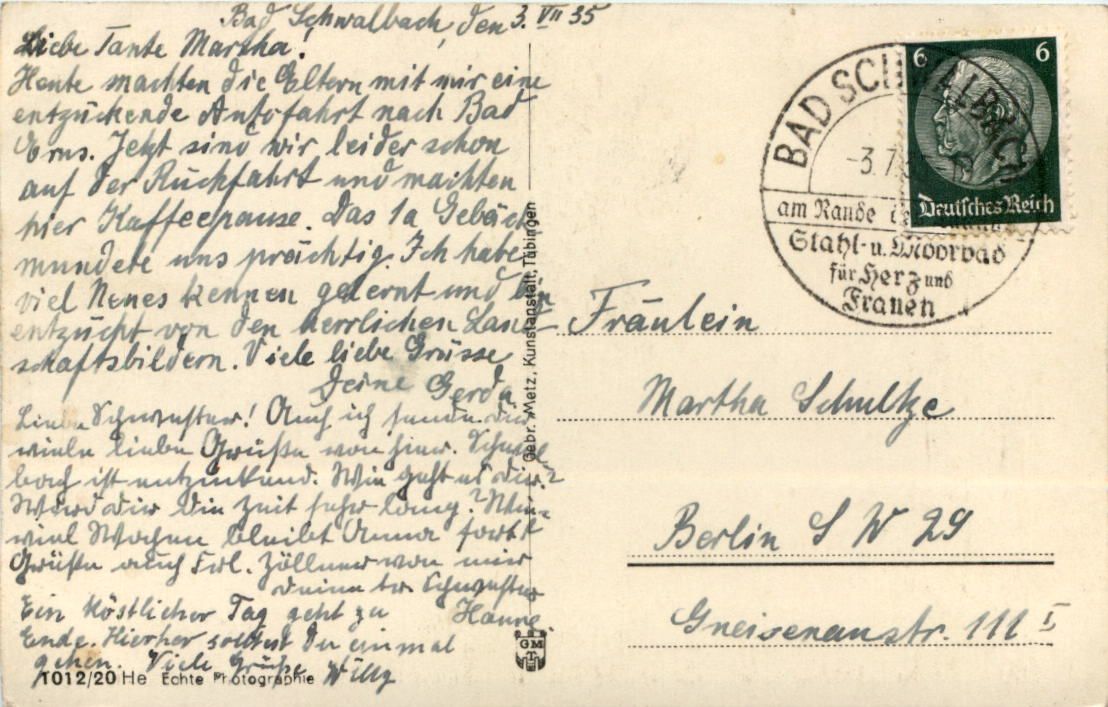 Bad Schwalbach, den 3. VII 35
Liebe Tante Martha!
Heute machten die Eltern mit mir eine
entzückende Autofahrt nach Bad
Ems. Jetzt sind wir leider schon
auf der Rückfahrt und machten
hier Kaffeepause. Das 1a Gebäck
mundete uns prächtig. Ich habe
viel Neues kennen gelernt und bin
entzückt von den herrlichen Land-
schaftsbildern. Viele liebe Grüsse
Deine Gerda
Liebe Schwester! Auch ich sende dir
viele liebe Grüße von hier. Schwal-
bach ist entzückend. Wie geht es dir?
Wird dir die Zeit sehr lang? Wie-
viel Wochen bleibt Anna fort?
Grüße auch Frl. Zöllner von mir
deine tr. Schwester
Hanne
Ein köstlicher Tag geht zu
Ende. Hierher solltest Du einmal
gehen. Viele Grüße Willy
1012/20 He Echte Photographie
Gebr. Metz, Kunstanstalt, Tübingen
GM
T
BAD SCHWALBACH
-3.7.
am Rande
Stahl- u. Moorbad
für Herz und
Frauen
6 6
Deutsches Reich
Fräulein
Martha Schultze
Berlin S W 29
Gneisenaustr. 111 I